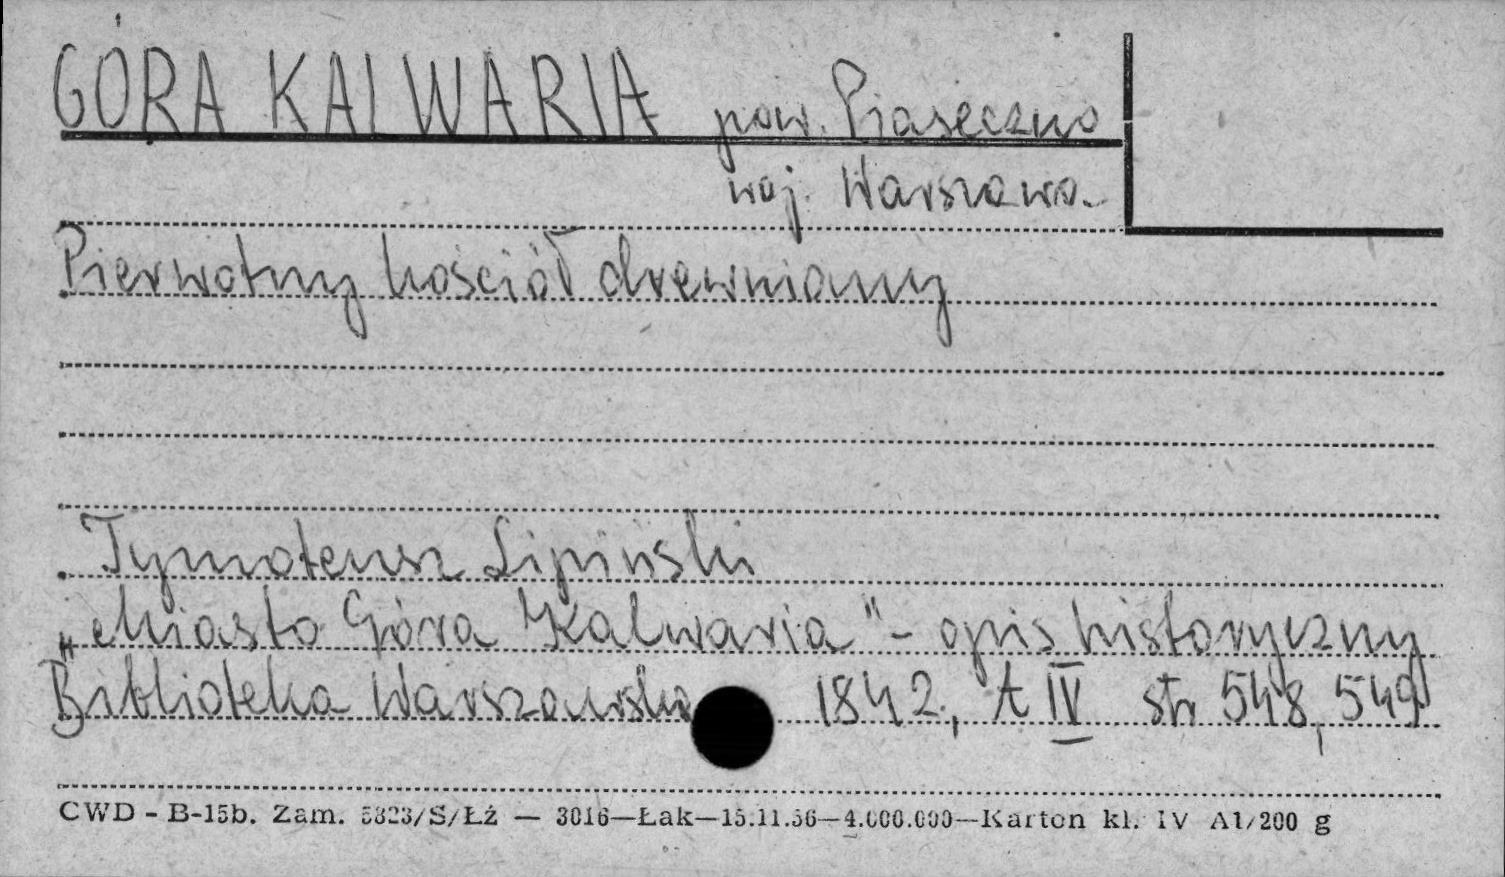 GÓRA KALWARIA pow. Piaseczno
woj. Warszawa
Pierwotny kościół drewniany
Tymoteusz Lipiński
„Miasto Góra Kalwaria" - opis historyczny
Biblioteka Warszawska 1842, t IV str 548, 549
CWD - B-15b. Zam. 5323/S/Łź — 3016—Łak—15.11.56—4.000.000—Karton kl. IV A1/200 g